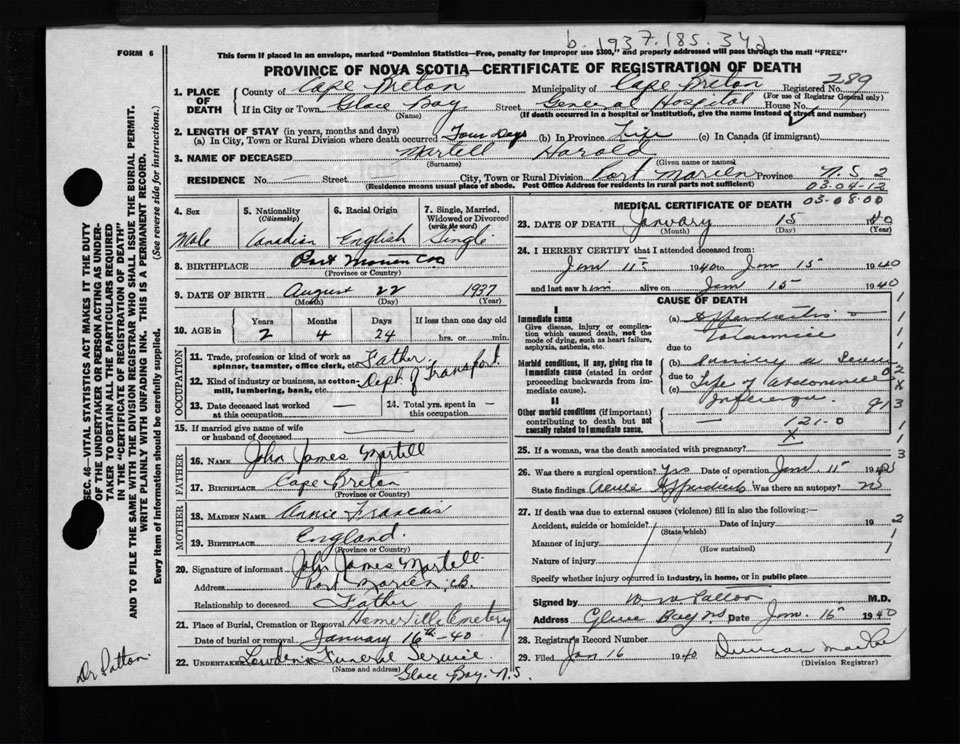 b. 1937.185.342
FORM 6
This form if placed in an envelope, marked "Dominion Statistics—Free, penalty for improper use $300," and properly addressed will pass through the mail "FREE"
PROVINCE OF NOVA SCOTIA—CERTIFICATE OF REGISTRATION OF DEATH
289
1. PLACE OF DEATH
County of Cape Breton Municipality of Cape Breton Registered No.
(For use of Registrar General only)
If in City or Town Glace Bay Street General Hospital House No.
(Name) (If death occurred in a hospital or institution, give the name instead of street and number)
2. LENGTH OF STAY (in years, months and days)
(a) In City, Town or Rural Division where death occurred Four Days (b) In Province Life (c) In Canada (if immigrant)
3. NAME OF DECEASED Martell Harold
(Surname) (Given name or names)
RESIDENCE No. — Street City, Town or Rural Division Port Morien Province N.S. 2
(Residence means usual place of abode. Post Office Address for residents in rural parts not sufficient)
03-04-12
03-08-00
4. Sex
Male
5. Nationality
(Citizenship)
Canadian
6. Racial Origin
English
7. Single, Married, Widowed or Divorced
(write the word)
Single
8. BIRTHPLACE Port Morien
(Province or Country)
9. DATE OF BIRTH August 22 1937
(Month) (Day) (Year)
10. AGE in
Years Months Days If less than one day old
2 4 24 hrs. or min.
OCCUPATION
11. Trade, profession or kind of work as spinner, teamster, office clerk, etc. Father
12. Kind of industry or business, as cotton-mill, lumbering, bank, etc. Dept. of Transport
13. Date deceased last worked at this occupation —
14. Total yrs. spent in this occupation —
15. If married give name of wife or husband of deceased
FATHER
16. Name John James Martell
17. Birthplace Cape Breton
(Province or Country)
MOTHER
18. Maiden Name Annie Francais
19. Birthplace England
(Province or Country)
20. Signature of informant John James Martell
Address Port Morien, C.B.
Relationship to deceased Father
21. Place of Burial, Cremation or Removal Homeville Cemetery
Date of burial or removal January 16th-40
22. Undertaker Funeral Service
(Name and address)
Glace Bay. N.S.
MEDICAL CERTIFICATE OF DEATH
23. DATE OF DEATH January 15 1940
(Month) (Day) (Year)
24. I HEREBY CERTIFY that I attended deceased from:
Jan 11 1940 to Jan 15 1940
and last saw him alive on Jan 15 1940
CAUSE OF DEATH
I
Immediate cause
Give disease, injury or complication which caused death, not the mode of dying, such as heart failure, asphyxia, asthenia, etc.
(a) Appendicitis
due to
Morbid conditions, if any, giving rise to immediate cause (stated in order proceeding backwards from immediate cause).
(b)
due to
(c)
II
Other morbid conditions (if important) contributing to death but not causally related to immediate cause.
121-0
X
25. If a woman, was the death associated with pregnancy?
26. Was there a surgical operation? Yes Date of operation Jan. 11 1940
State findings Acute Appendicitis Was there an autopsy? no
27. If death was due to external causes (violence) fill in also the following:—
Accident, suicide or homicide? Date of injury 19
(State which)
Manner of injury
(How sustained)
Nature of injury
Specify whether injury occurred in industry, in home, or in public place
Signed by M.D.
Address Glace Bay NS Date Jan. 16 1940
28. Registrar's Record Number
29. Filed Jan 16 1940 Duncan
(Division Registrar)
SEC. 46—VITAL STATISTICS ACT MAKES IT THE DUTY
OF THE UNDERTAKER OR PERSON ACTING AS UNDER-
TAKER TO OBTAIN ALL THE PARTICULARS REQUIRED
IN THE "CERTIFICATE OF REGISTRATION OF DEATH"
AND TO FILE THE SAME WITH THE DIVISION REGISTRAR WHO SHALL ISSUE THE BURIAL PERMIT.
WRITE PLAINLY WITH UNFADING INK. THIS IS A PERMANENT RECORD.
Every item of Information should be carefully supplied. (See reverse side for instructions.)
Dr Patton